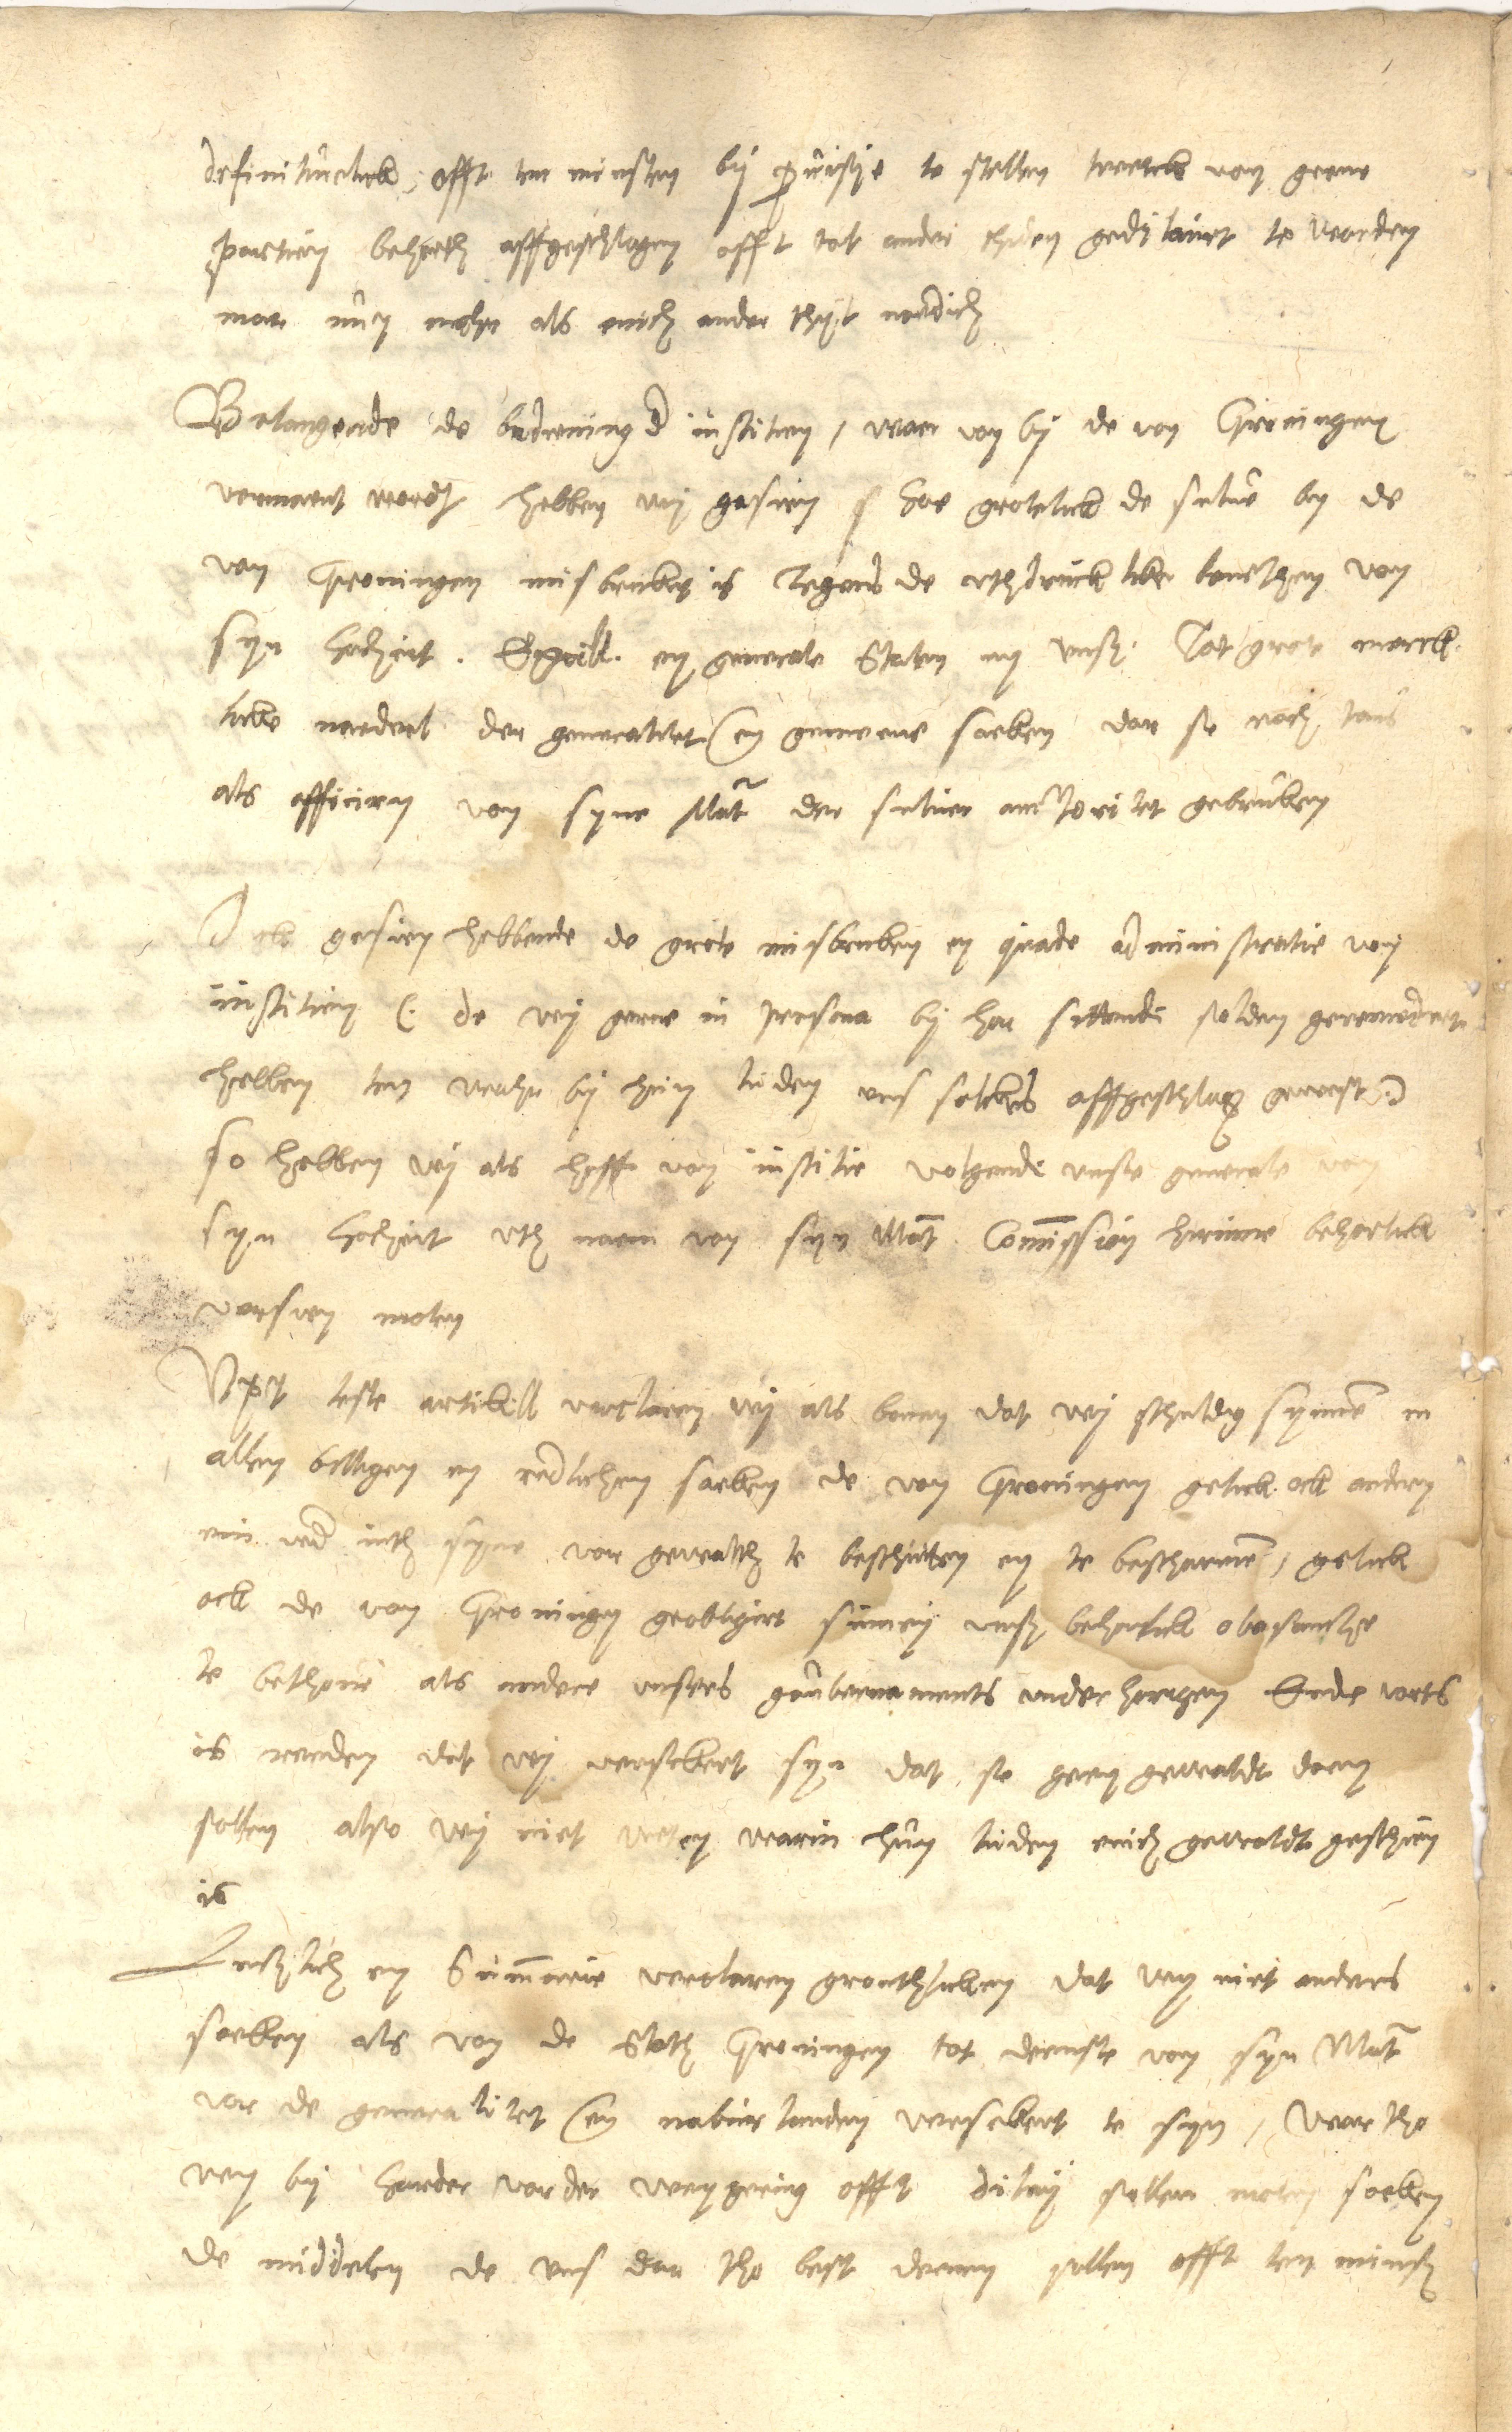 definitivelick, offt ten minsten bij provisie te stellen twelck van geene
partien behorth affgeschlagen offt tot ander tyden gedilaiert te worden
mar nu mehr als enich ander thyt nodich
Belangende de bedreining d justitien, waer van bij de van Groningen
vermaent wordt hebben wij gesien hoe grotelick de selve by de
van Groningen misbruket is Tegens de uthdruckliker bevelhen van
syn hocheit. Excell. en generale Staten en unse. Tot grote marck
licke nardeel der generalitet en gemeene saeken dar se noch tans
als officiren van syne Mat der selver auctoritet gebruken
Ock gesien hebbende de grote misbruken en quade administratie van
justitien (: de wij gerne in persona bij har sittende solden geremedeert
hebben ten wehr bij hun luden uns solckes affgeschlagen gewest :)
so hebben wij als hoff van justitie volgende unse generale van
syn hocheit uth naem van syn Mat Commission hirinne behorlick
versien moten
Upt leste artikell verclaren wij als boven dat wij schuldig synnen in
allen billigen en redlichen saeken de van Groningen gelick ock andern
ein jed inth syne vor gewalth te beschutten en te beschermen, gelick
ock de van Groningen geobligirt sinnen uns behorlick obesantie
te bethonen als andere unseres gouvernaments underhorigen Ende vorts
is reeden dat wij versekert syn dat se geen gewaldt doen
sollen also wij niet weten warin hun luden enich gewaldt geschien
is
Entlich en Summarie verclaren grontlicken dat wij niet anders
soeken als van de Stath Groningen tot dienste van syn Mat
vor de generalitet en nabur landen versekert te syn, war tho
wij bij harder vorder weygering offt dilay sollen moten soeken
de middelen de uns dar tho best dienen sollen offt ten minsten